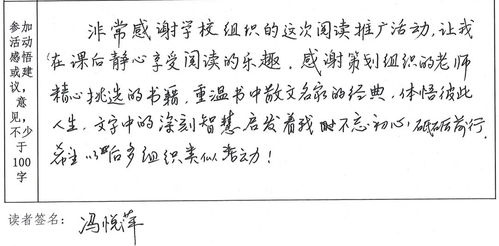 参加活动感悟或建议，意见，不少于100字
非常感谢学校组织的这次阅读推广活动，让我
在课后静心享受阅读的乐趣。感谢策划组织的老师
精心挑选的书籍，重温书中散文名家的经典，体悟彼此
人生，文字中的深刻智慧启发着我时不忘初心，砥砺前行。
希望以后多组织类似活动！
读者签名：冯悦萍